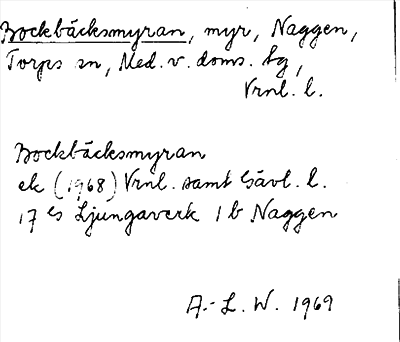 Bockbäcksmyran, myr, Naggen,
Torps sn, Med. v. doms. tg,
Vrnl. l.
Bockbäcksmyran
ek (1968) Vrnl. samt Gävl. l.
17 G5 Ljungaverk 1 b Naggen
A.-L. W. 1969